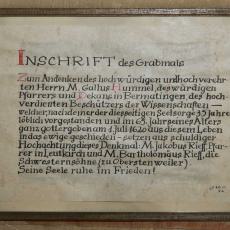 INSCHRIFT des Grabmals
Zum Andenken des hochwürdigen und hoch verehr-
ten Herrn M. Gallus Hummel, des würdigen
Pfarrers und Dekans in Bermatingen, des hoch-
verdienten Beschützers der Wissenschaften —
welcher, nachdem er der diesseitigen Seelsorge 35 Jahre
löblich vorgestanden und im 63. Jahre seines Alters
ganz gottergeben am 4. Juli 1620 aus diesem Leben
in das ewige geschieden – setzen aus schuldiger
Hochachtung dieses Denkmal: M. Jakobus Kieff, Pfar-
rer in Leutkirch und M. Bartholomäus Kieff, die
Schwestersöhne, (zu Oberstenweiler).
Seine Seele ruhe im Frieden!